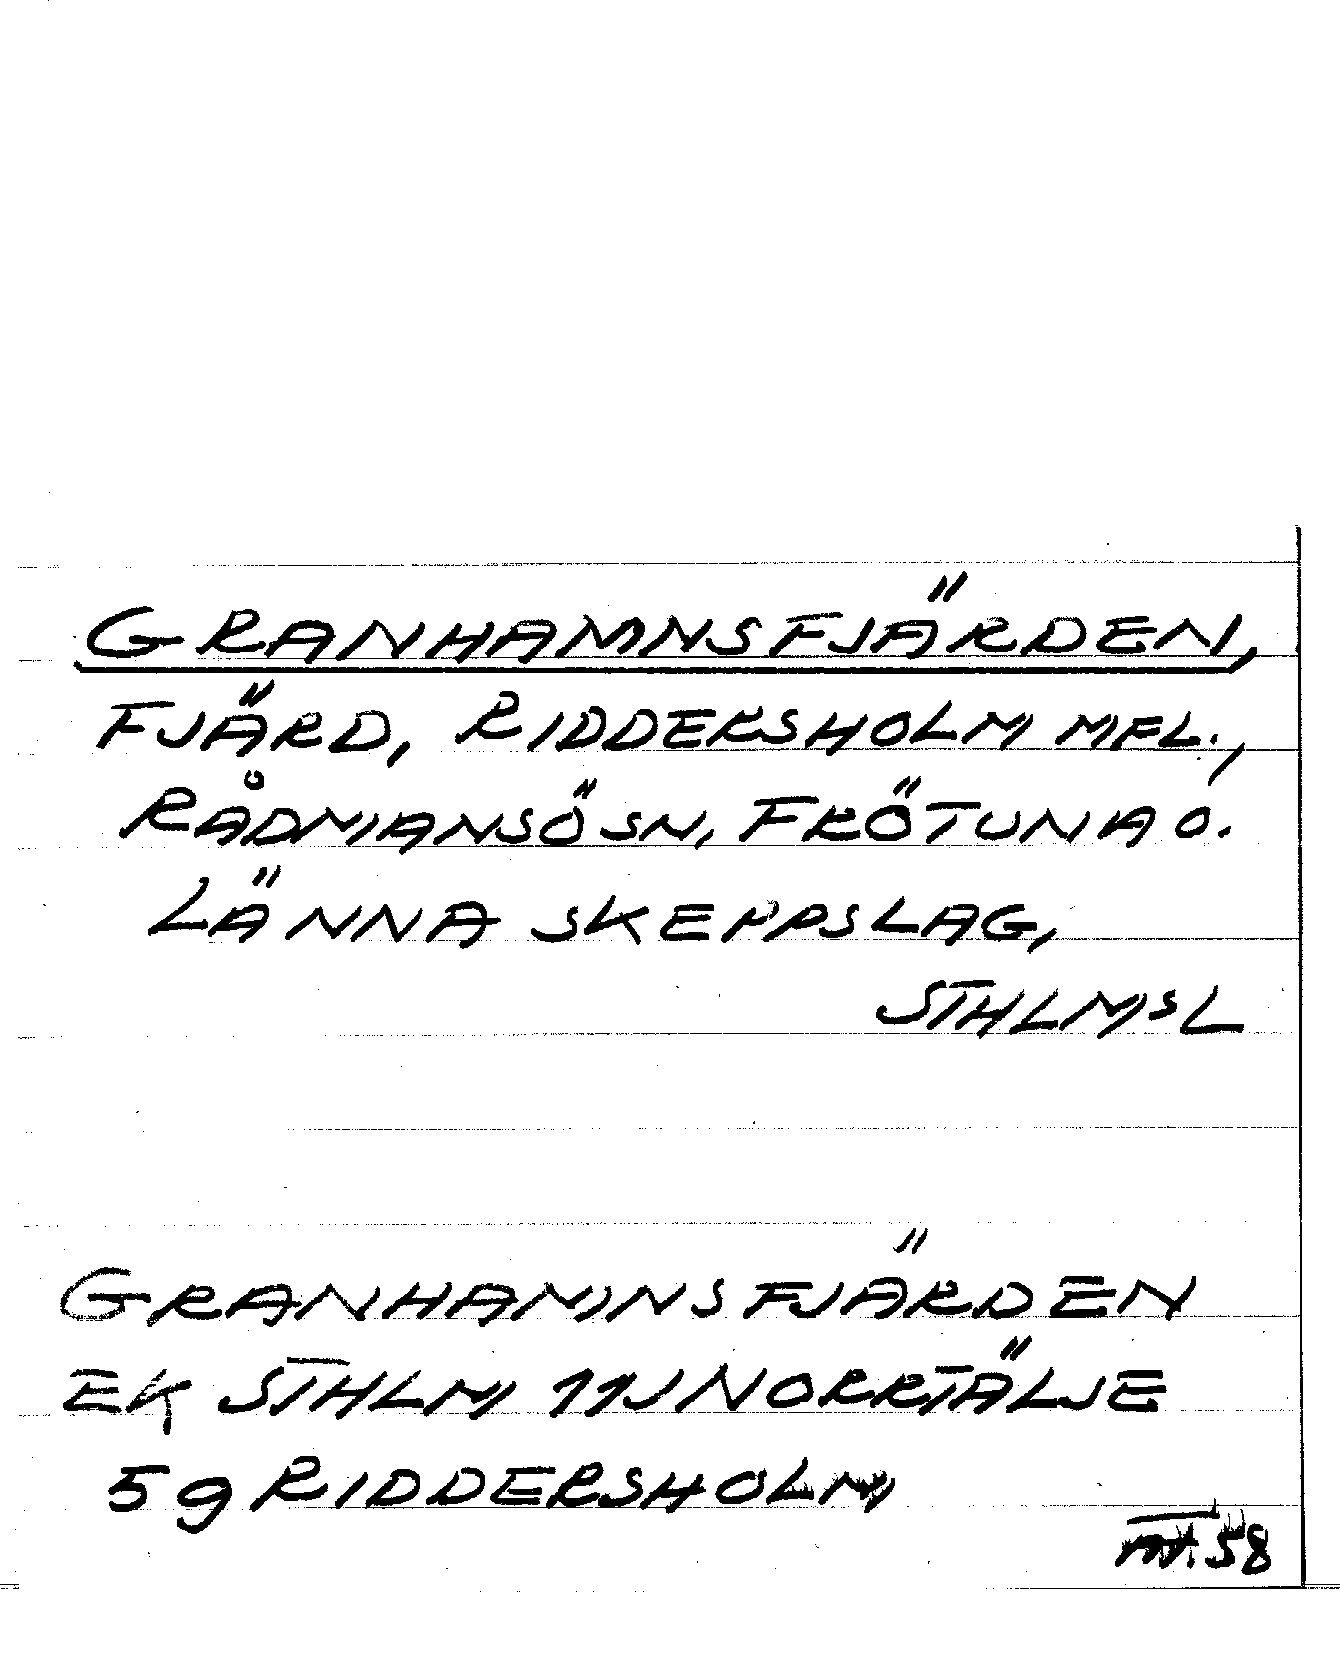 GRANHAMNSFJÄRDEN,
FJÄRD, RIDDERSHOLM MFL.,
RÅDMANSÖ SN, FRÖTUNA O.
LÄNNA SKEPPSLAG,
STHLMS L
GRANHAMNSFJÄRDEN
EK STHLM 11J NORRTÄLJE
5g RIDDERSHOLM
58